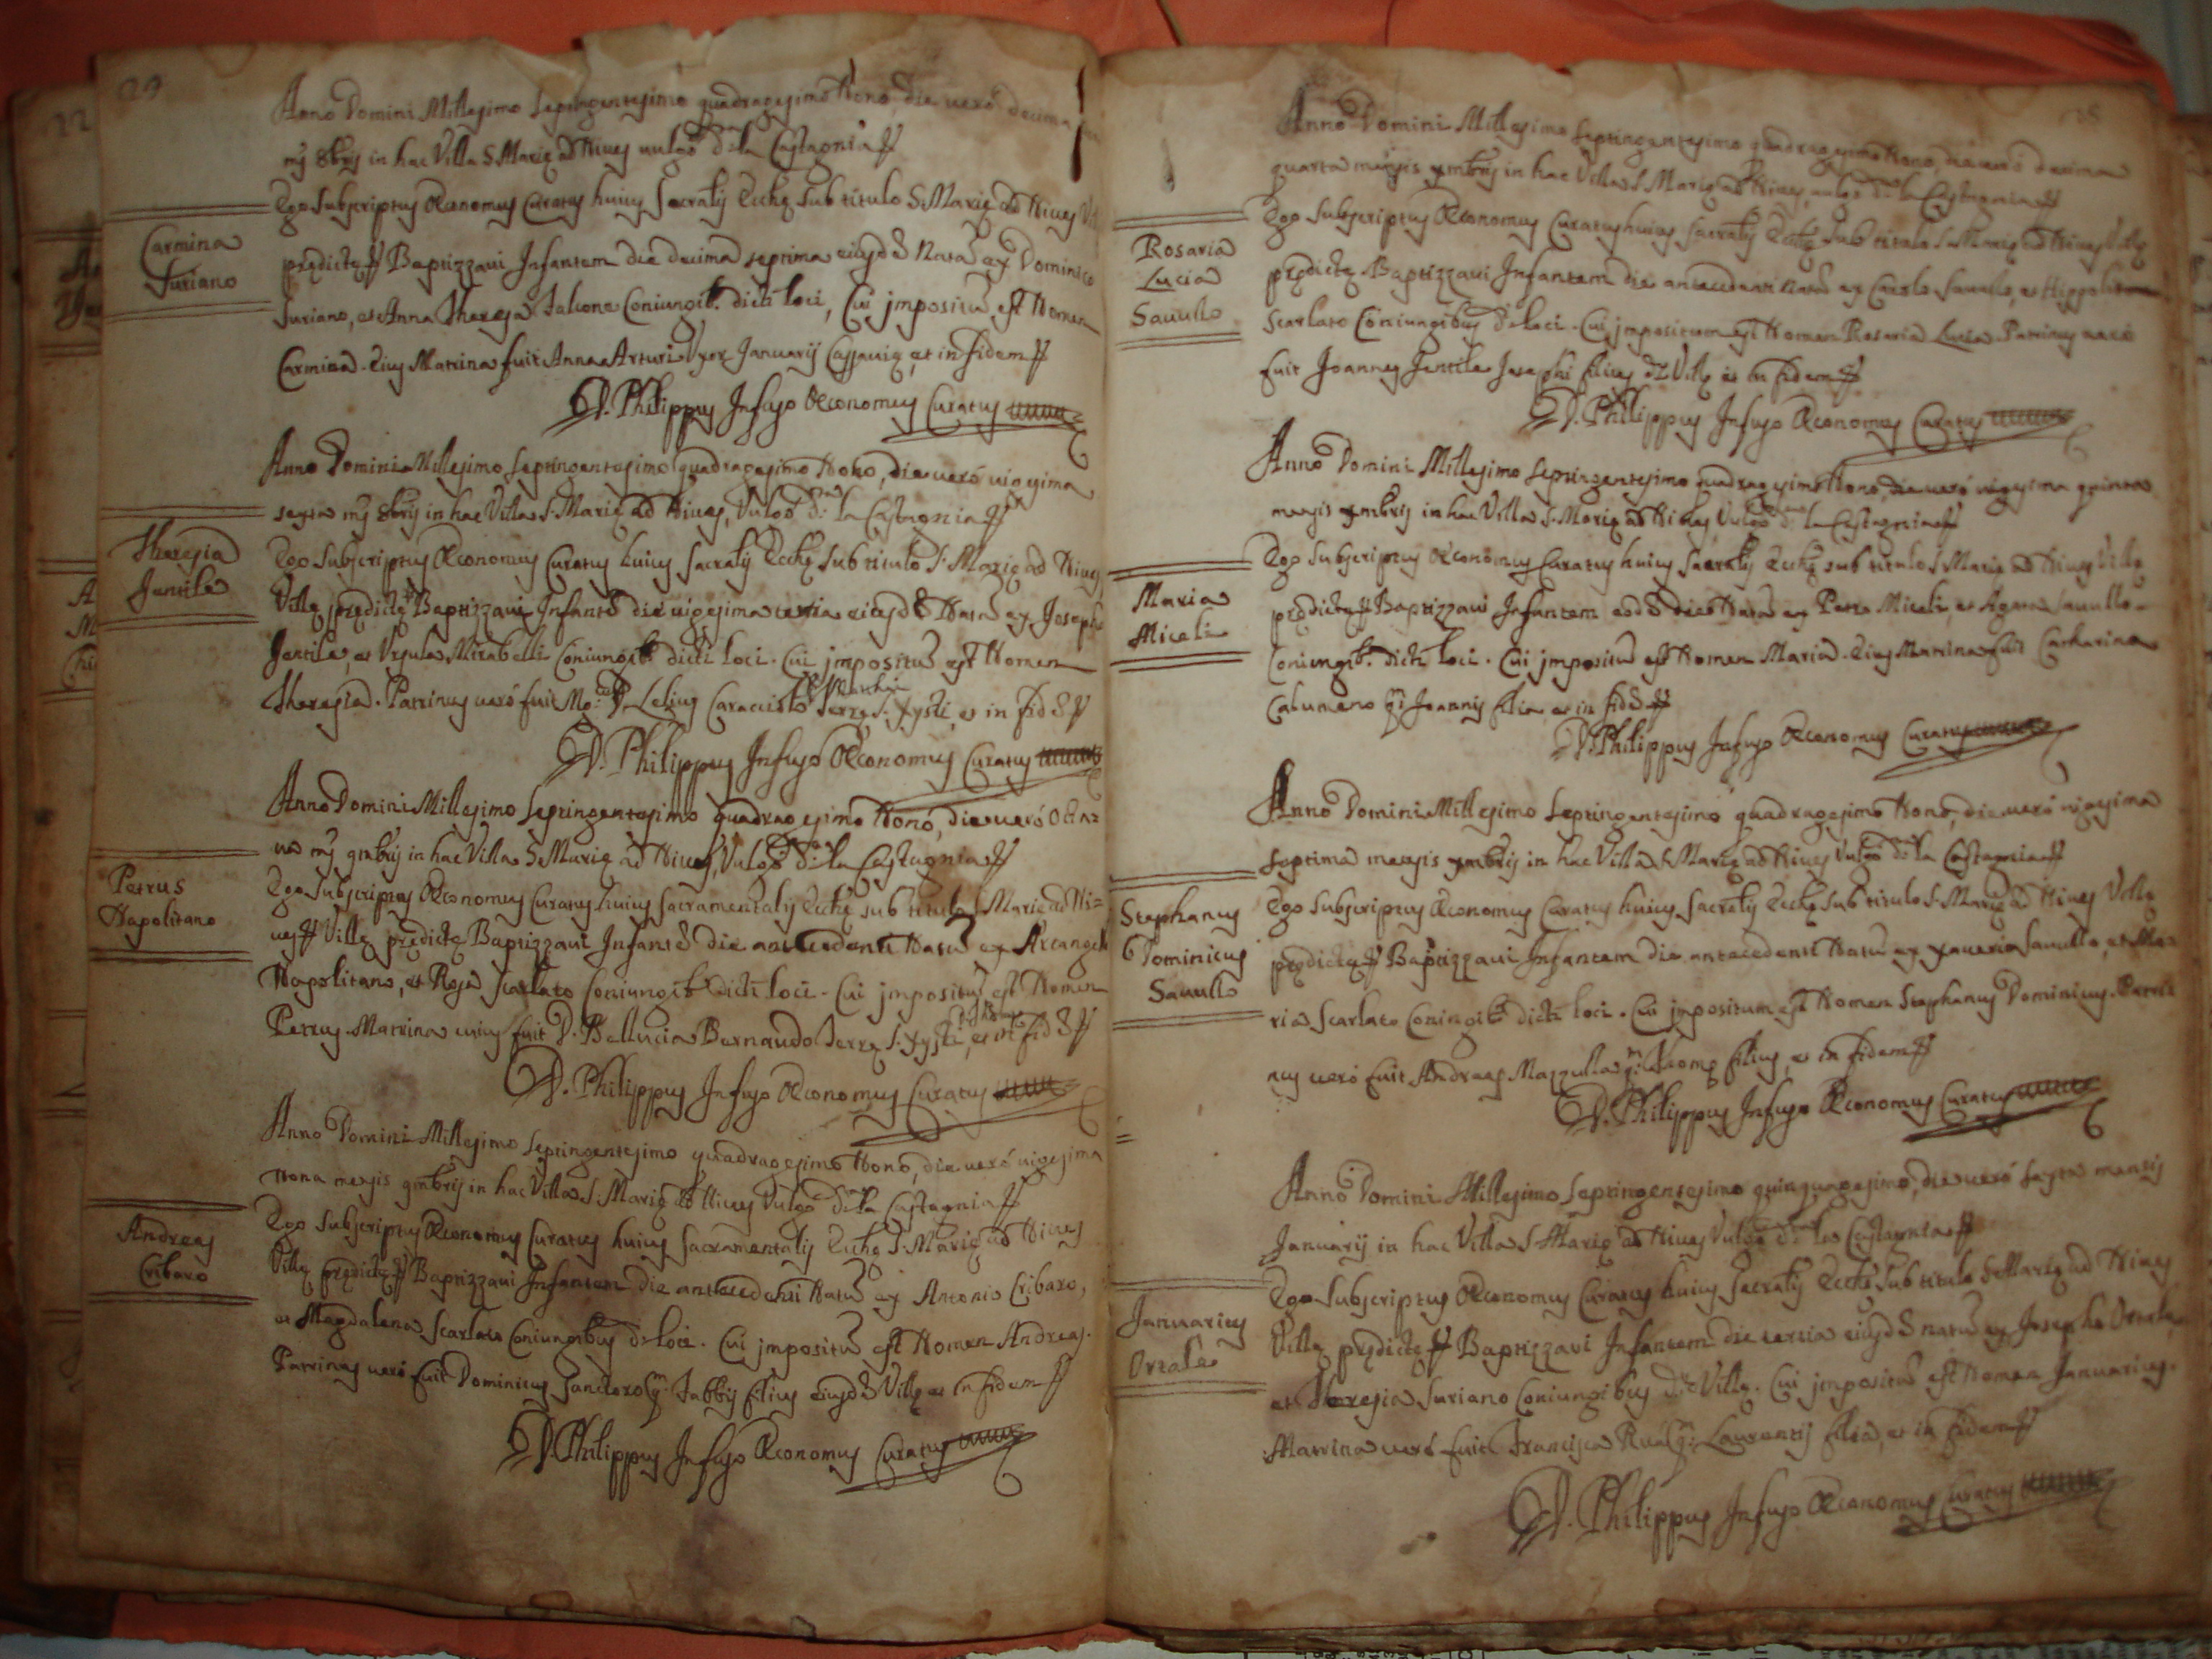 22
29
Anno Domini Millesimo Septingentesimo quadragesimo Nono, die verò decima
mẽs 8bris in hac Villa S. Marię ad Nives vulgò dictã la Castagnia
Carmina
Suriano
Ego Subscriptus Œconomus Curatus huius Sacralis Ecclę sub titulo S. Marię ad Nives
prędictę Baptizzavi Infantem die decima septima eiusd. Natã ex Dominico
Suriano, et Anna Theresia Falcone Coniungib. dicti loci, Cui jmpositũ est Nomen
Carmina. Eius Matrina fuit Anna Arturi Uxor Januarij Cassavia, et in fidem
D. Philippus Infuso Œconomus Curatus
Anno Domini Millesimo Septingentesimo quadragesimo Nono, die verò vigesima
sexta mẽs 8bris in hac Villa S. Marię ad Nives, Vulgò d. la Castagnia
Theresia
Jentile
Ego Subscriptus Œconomus Curatus huius Sacralis Ecclę sub titulo S. Marię ad Nives
Villę prędictę Baptizzavi Infantẽ die vigesima tertia eiusd. Natã ex Joseph
Jentile, et Ursula Mirabelli Coniungib. dicti loci. Cui jmpositũ est Nomen
Theresia. Patrinus verò fuit D. Lelius Caracciolo Terrę S. Xysti, et in fid.
D. Philippus Infuso Œconomus Curatus
Anno Domini Millesimo Septingentesimo quadragesimo Nono, die verò Octa=
va mẽs 9mbris in hac Villa S. Marię ad Nives, Vulgò d. la Castagnia
Petrus
Napolitano
Ego Subscriptus Œconomus Curatus huius Sacramentalis Ecclę sub titulo S. Marię ad Ni=
ves Villę prędictę Baptizzavi Infantẽ die antecedenti Natũ ex Arcangelo
Napolitano, et Rosa Scarlato Coniungib. dicti loci. Cui jmpositũ est Nomen
Petrus. Matrina eius fuit D. Bellucia Bernaudo Terrę S. Xysti, et in fid.
D. Philippus Infuso Œconomus Curatus
Anno Domini Millesimo Septingentesimo quadragesimo Nono, die verò vigesima
Nona mensis 9mbris in hac Villa S. Marię ad Nives Vulgò d. la Castagnia
Andreas
Cribaro
Ego Subscriptus Œconomus Curatus huius Sacramentalis Ecclę S. Marię ad Nives
Villę prędictę Baptizzavi Infantem die antecedenti Natũ ex Antonio Cribaro,
et Magdalena Scarlato Coniungibus d. loci. Cui jmpositũ est Nomen Andreas.
Patrinus verò fuit Dominicus Sandoro qm. Fabbij filius eiusd. Villę et in fidem
D. Philippus Infuso Œconomus Curatus
Anno Domini Millesimo Septingentesimo quadragesimo Nono, die verò decima
quarta mensis xmbris in hac Villa S. Marię ad Nives, vulgò d. la Castagnia
Rosaria
Lucia
Sauullo
Ego Subscriptus Œconomus Curatus huius Sacralis Ecclę sub titulo S. Marię ad Nives Villę
prędictę Baptizzavi Infantem die antecedenti Natã ex Carolo Sauullo, et Hippolita
Scarlato Coniungibus d. loci. Cui jmpositum est Nomen Rosaria Lucia. Patrinus verò
fuit Joannes Jentile Josephi filius d. Villę et in fidem
D. Philippus Infuso Œconomus Curatus
Anno Domini Millesimo Septingentesimo quadragesimo Nono, die verò vigesima quinta
mensis xmbris in hac Villa S. Marię ad Nives Vulgò d. la Castagnia
Maria
Miceli
Ego Subscriptus Œconomus Curatus huius Sacralis Ecclę sub titulo S. Marię ad Nives Villę
prędictę Baptizzavi Infantem eod. die Natã ex Petro Miceli, et Agata Sauullo
Coniungib. dicti loci. Cui jmpositũ est Nomen Maria. Eius Matrina fuit Catharina
Calumeno qm. Joannis filia et in fid.
D. Philippus Infuso Œconomus Curatus
Anno Domini Millesimo Septingentesimo quadragesimo Nono, die verò vigesima
septima mensis xmbris in hac Villa S. Marię ad Nives Vulgò d. la Castagnia
Stephanus
Dominicus
Sauullo
Ego Subscriptus Œconomus Curatus huius Sacralis Ecclę sub titulo S. Marię ad Nives Villę
prędictę Baptizzavi Infantem die antecedenti Natũ ex Xaverio Sauullo, et Ma=
ria Scarlato Coniugib. dicti loci. Cui jmpositum est Nomen Stephanus Dominicus. Patri
nus verò fuit Andreas Mazzulla qm. filius, et in fidem
D. Philippus Infuso Œconomus Curatus
Anno Domini Millesimo Septingentesimo quinquagesimo, die verò Sexta mensis
Januarij in hac Villa S. Marię ad Nives Vulgò d. la Castagnia
Januarius
Ortale
Ego Subscriptus Œconomus Curatus huius Sacralis Ecclę sub titulo S. Marię ad Nives
Villę prędictę Baptizzavi Infantem die tertia eiusd. natũ ex Josepho Ortale,
et Theresia Suriano Coniungibus d. Villę. Cui jmpositũ est Nomen Januarius.
Matrina verò fuit Francisca Ruà qm. Laurentij filia, et in fidem
D. Philippus Infuso Œconomus Curatus